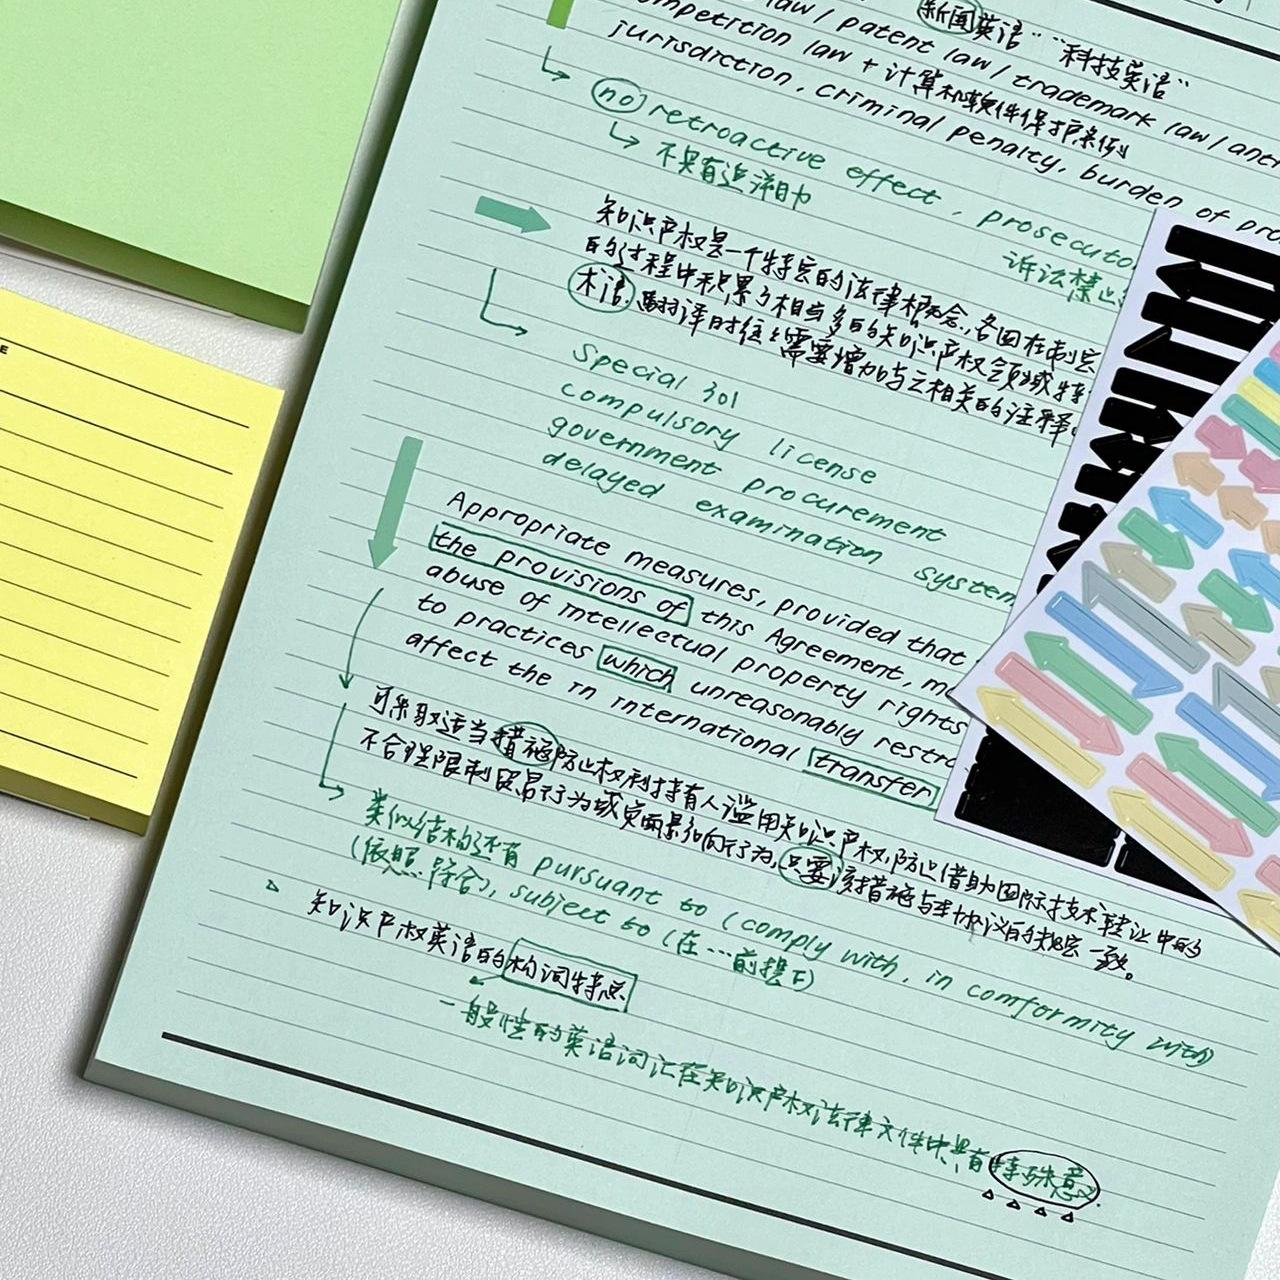 新闻英语" "科技英语"
law / patent law / trademark law / anti
competition law + 计算机软件保护条例
jurisdiction, criminal penalty, burden of pro
no retroactive effect, prosecuto
不具有追溯力
诉讼禁止
知识产权是一个特定的法律概念,各国在制定
的过程中积累了相当多的知识产权领域特
术语.翻译时往往需要增加与之相关的注释。
Special 301
compulsory license
government procurement
delayed examination system
Appropriate measures, provided that
the provisions of this Agreement, m
abuse of intellectual property rights
to practices which unreasonably restra
affect the in international transfer
可采取适当措施防止权利持有人滥用知识产权,防止借助国际技术转让中的
不合理限制贸易行为或实质影响行为,只要该措施与本协议的规定一致。
类似结构还有 pursuant to (comply with, in comformity with)
(依照.符合), subject to (在…前提下)
知识产权英语的构词特点
一般性的英语词汇在知识产权法律文件中具有特殊意义.
E